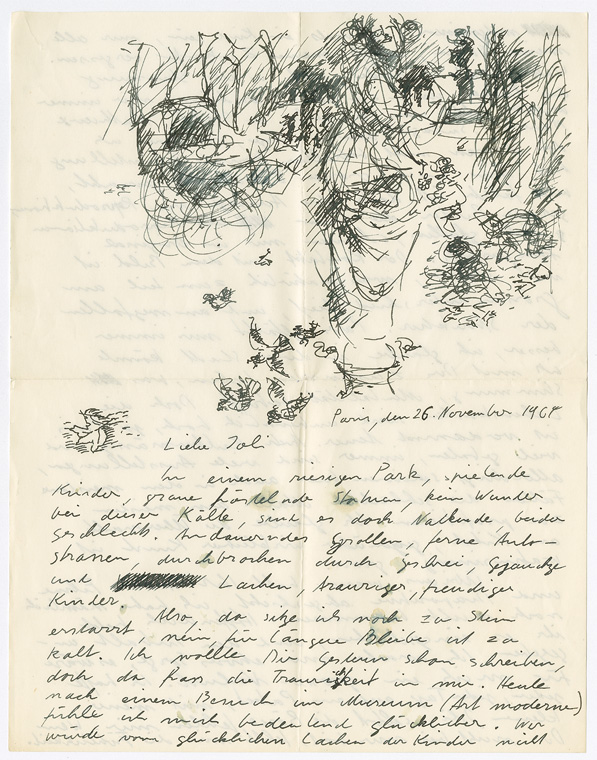 Paris, den 26. November 196
Liebe Joli
In einem riesigen Park, spielende
Kinder, graue fröstelnde Statuen, kein Wunder
bei dieser Kälte, sind es doch Nackende, beider
geschlecht. Andauerndes Grollen, ferne Auto-
strassen, durchbrochen durch geschrei, Gejauchze
und Lachen, trauriger, freudiger
Kinder.
Also, da sitze ich noch zu Stein
erstarrt, nein, für längere Bleibe ist zu
kalt. Ich wollte Dir Gestern schon schreiben,
doch da frass die Traurigkeit in mir. Heute
nach einem Besuch im Museum (Art moderne)
fühle ich mich bedeutend glücklicher. Wer
würde vom glücklichen Lachen der Kinder nicht